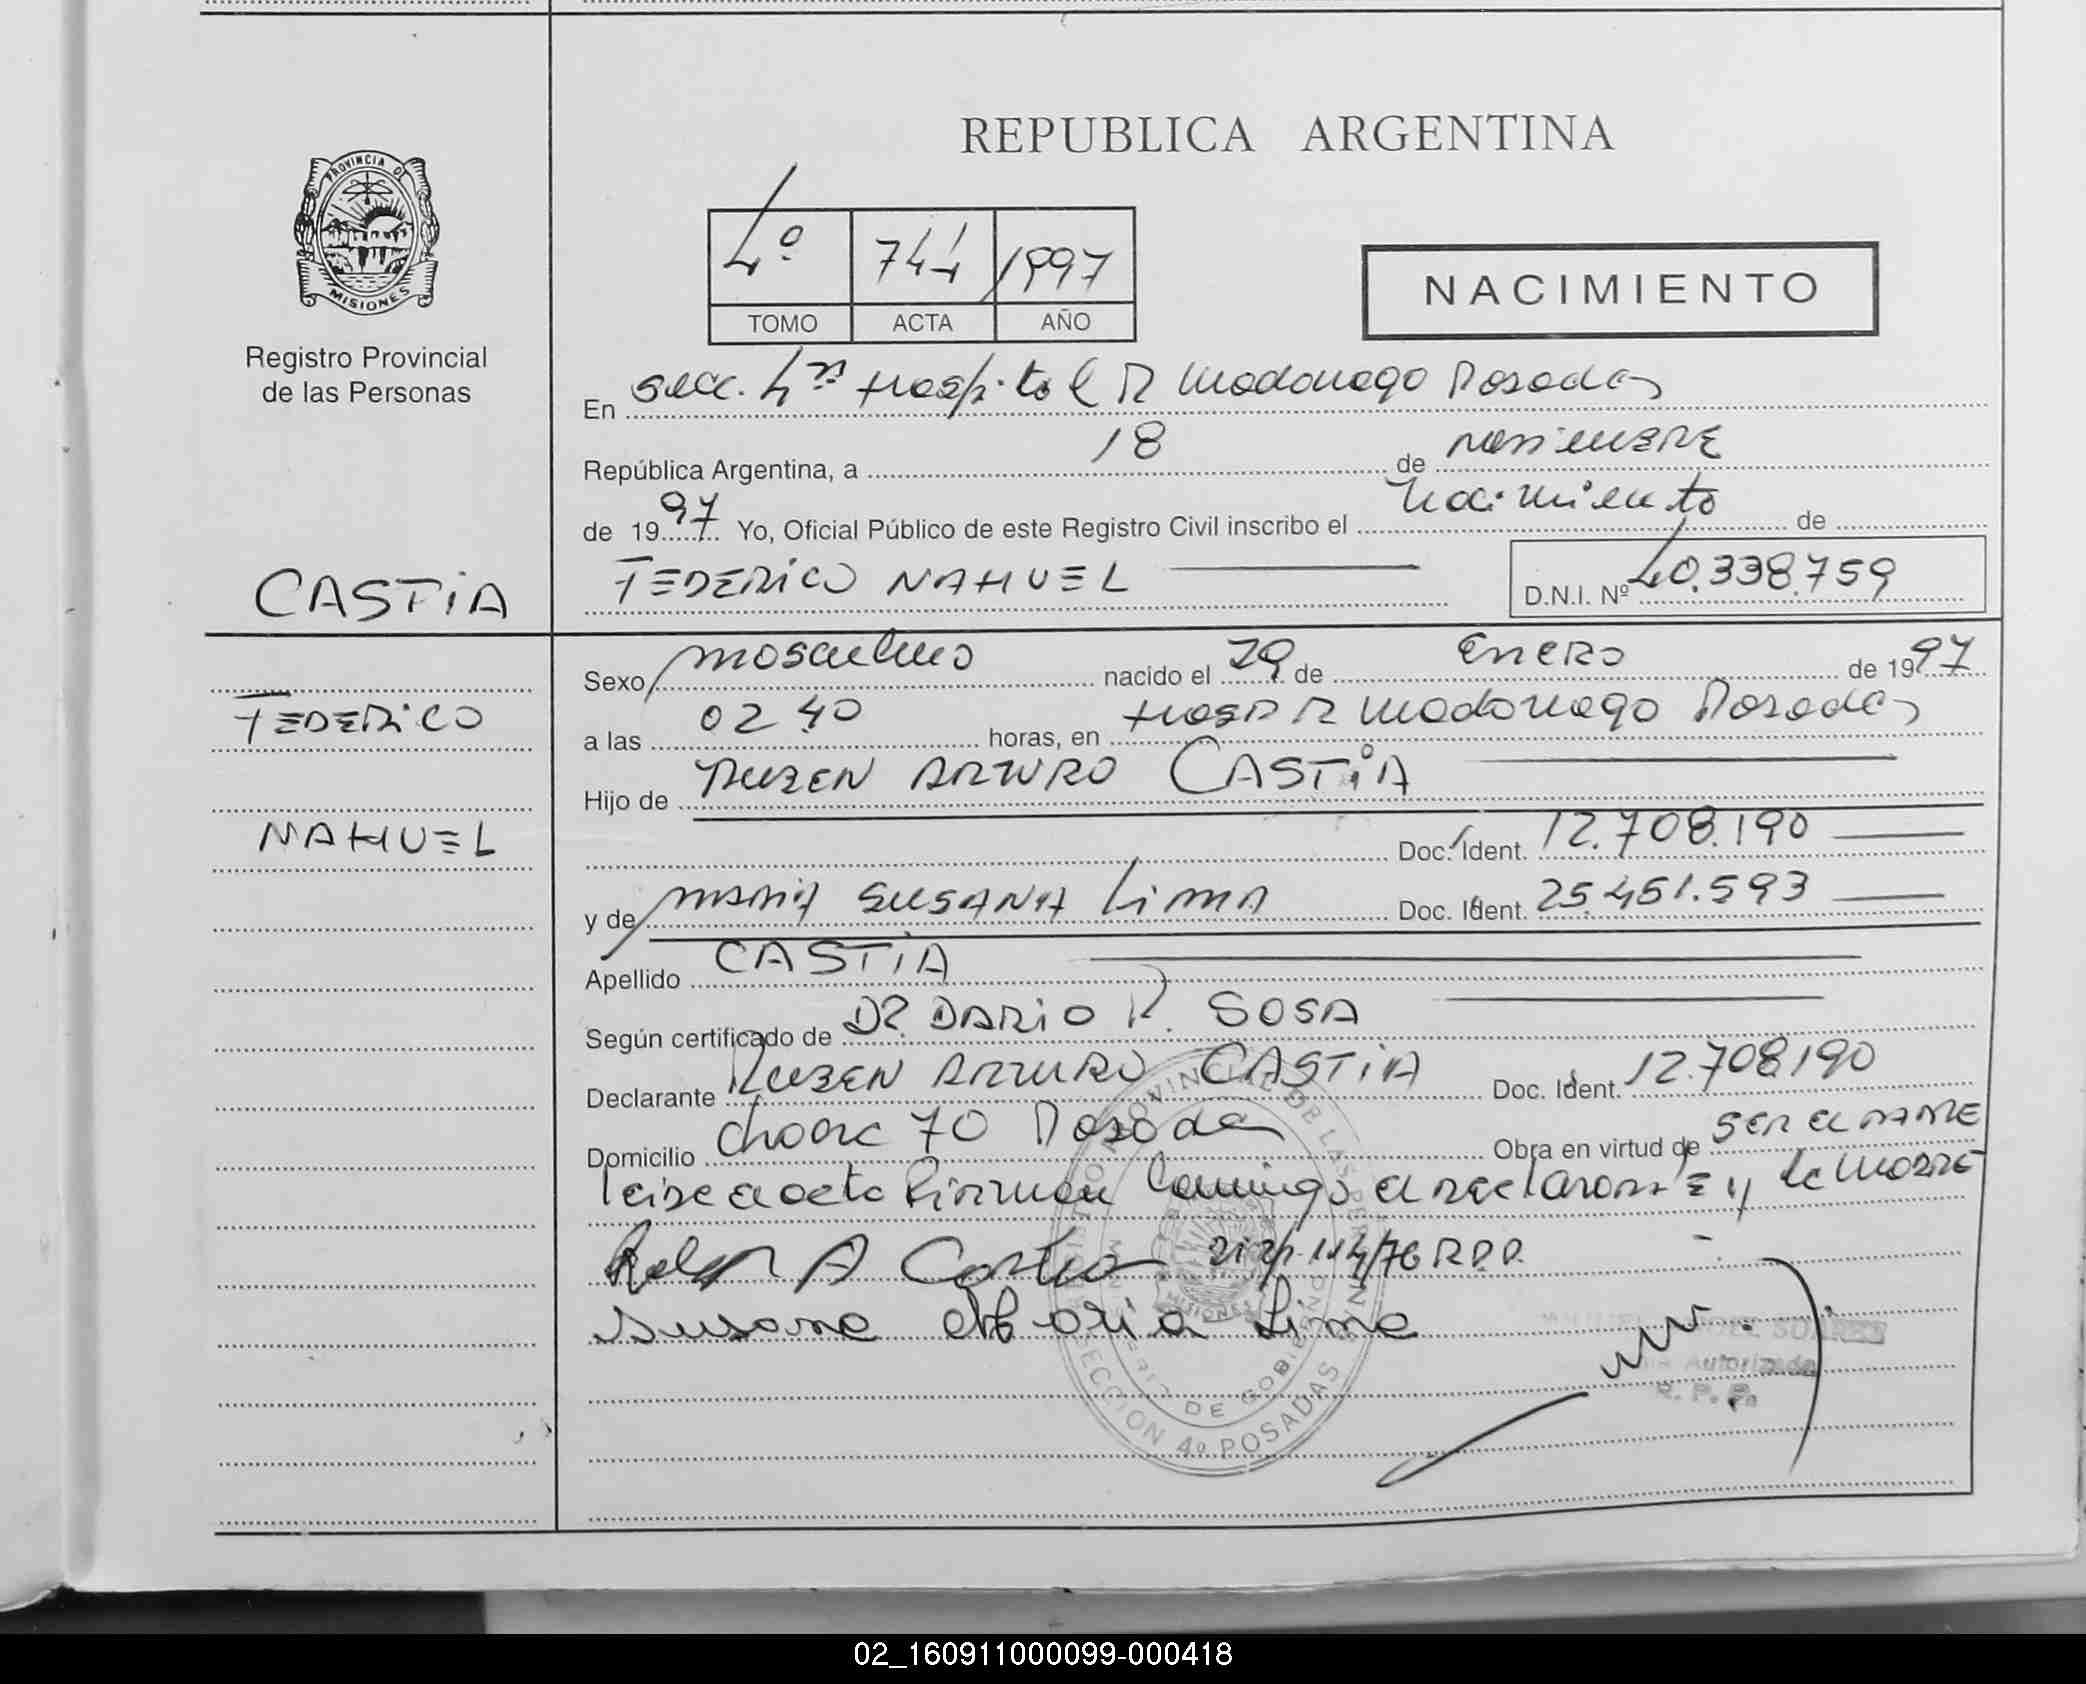 REPUBLICA ARGENTINA
PROVINCIA DE
MISIONES
Registro Provincial
de las Personas
4º 744 1997
TOMO ACTA AÑO
NACIMIENTO
En secc. 4ª Hospital R Madariaga Posadas
República Argentina, a 18 de noviembre
de 1997 Yo, Oficial Público de este Registro Civil inscribo el nacimiento de
CASTIA
FEDERICO NAHUEL D.N.I. Nº 40.338.759
FEDERICO
NAHUEL
Sexo masculino nacido el 29 de Enero de 1997
a las 02 40 horas, en Hosp R Madariaga Posadas
Hijo de RUBEN ARTURO CASTIA
Doc. Ident. 12.708.190
y de MARIA SUSANA LIMA Doc. Ident. 25.451.593
Apellido CASTIA
Según certificado de DR. DARIO R. SOSA
Declarante RUBEN ARTURO CASTIA Doc. Ident. 12.708190
Domicilio chacra 70 Posadas Obra en virtud de ser el PADRE
leída el acta firman conmigo el declarante y la madre
A Castia 114/76 R.P.P.
Susana Maria Lima
REGISTRO PROVINCIAL DE LAS PERSONAS
MINISTERIO DE GOBIERNO
MISIONES
SECCION 4º POSADAS
SUAREZ
Autorizada
R. P. P.
02_160911000099-000418